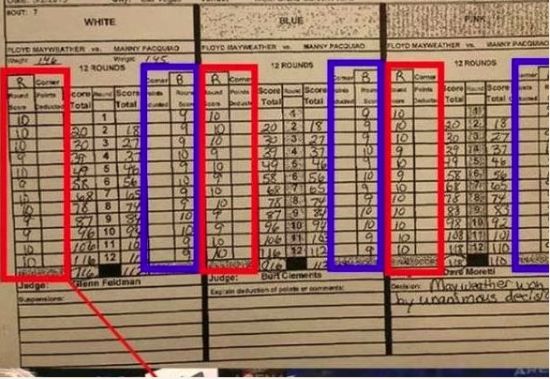 BOUT: 7
WHITE BLUE PINK
FLOYD MAYWEATHER vs. MANNY PACQUIAO FLOYD MAYWEATHER vs. MANNY PACQUIAO FLOYD MAYWEATHER vs. MANNY PACQUIAO
Weight 146 Weight 145
12 ROUNDS 12 ROUNDS 12 ROUNDS
R Corner B R Corner Corner B R Corner
Round Points Score Round Score Round Points Score Round Score Round Points Score Round Score
Score Deducted Total Total Score Deducted Total Total Score Deducted Total Total
10 1 9 10 1 9 10 1
10 20 2 18 9 10 20 2 18 9 10 20 2 18
10 30 3 27 9 10 30 3 27 9 10 30 3 27
9 39 4 37 10 9 39 4 37 10 9 39 4 37
10 49 5 46 9 10 49 5 46 9 10 49 5 46
9 58 6 56 10 9 58 6 56 10 9 58 6 56
10 68 7 65 9 10 68 7 65 9 10 68 7 65
10 78 8 74 9 10 78 8 74 9 10 78 8 74
9 87 9 84 10 9 87 9 84 10
9 96 10 94 10 9 96 10 94 10
10 106 11 103 9 10 106 11 103 9 10 108 11
10 116 12 112 9 10 116 12 112 9 10 118 12 110
116 116 112
Judge: Glenn Feldman Judge: Burt Clements Dave Moretti
Suspensions: Explain deduction of points or comments: Decision: Mayweather won
by unanimous decis